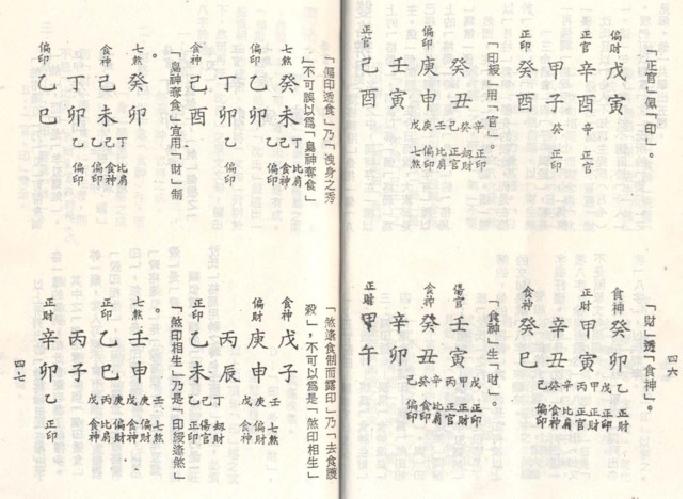 四六
「正官」佩「印」。
偏財 戊寅
正官 辛酉 辛 正官
甲子 癸 正印
正印 癸酉
「印綬」用「官」。
癸丑 辛 正印 癸 劫財 己 正官
偏印 庚申 壬 比肩 庚 偏印 戊 七煞
壬寅
正官 己酉
「財」透「食神」。
食神 癸卯 乙
正財 甲寅 戊 正印 丙 正官 甲 正財
辛丑 辛 比肩 癸 食神 己 偏印
食神 癸巳
「食神」生「財」。
傷官 壬寅 戊 正印 丙 正官 甲 正財
食神 癸丑 辛 比肩 癸 食神 己 偏印
辛卯
正財 甲午
「偏印透食」乃「洩身之秀
」不可誤以爲「梟神奪食」
七煞 癸未 丁 比肩 己 食神 乙 偏印
偏印 乙卯 乙 偏印
丁卯 乙 偏印
食神 己酉
「梟神奪食」宜用「財」制
。
七煞 癸卯 乙 偏印
食神 己未 丁 比肩 己 食神 乙 偏印
丁卯
偏印 乙巳
「煞逢食制而露印」乃「去食護
殺」,不可以爲是「煞印相生」
食神 戊子
偏財 庚申 壬 七煞 庚 偏財 戊 食神
丙辰
正印 乙未 丁 劫財 己 傷官 乙 正印
「煞印相生」乃是「印綬逢煞」
。
七煞 壬申 壬 七煞 庚 偏財 戊 食神
正印 乙巳 庚 偏財 丙 比肩 戊 食神
丙子
正財 辛卯 乙 正印
四七